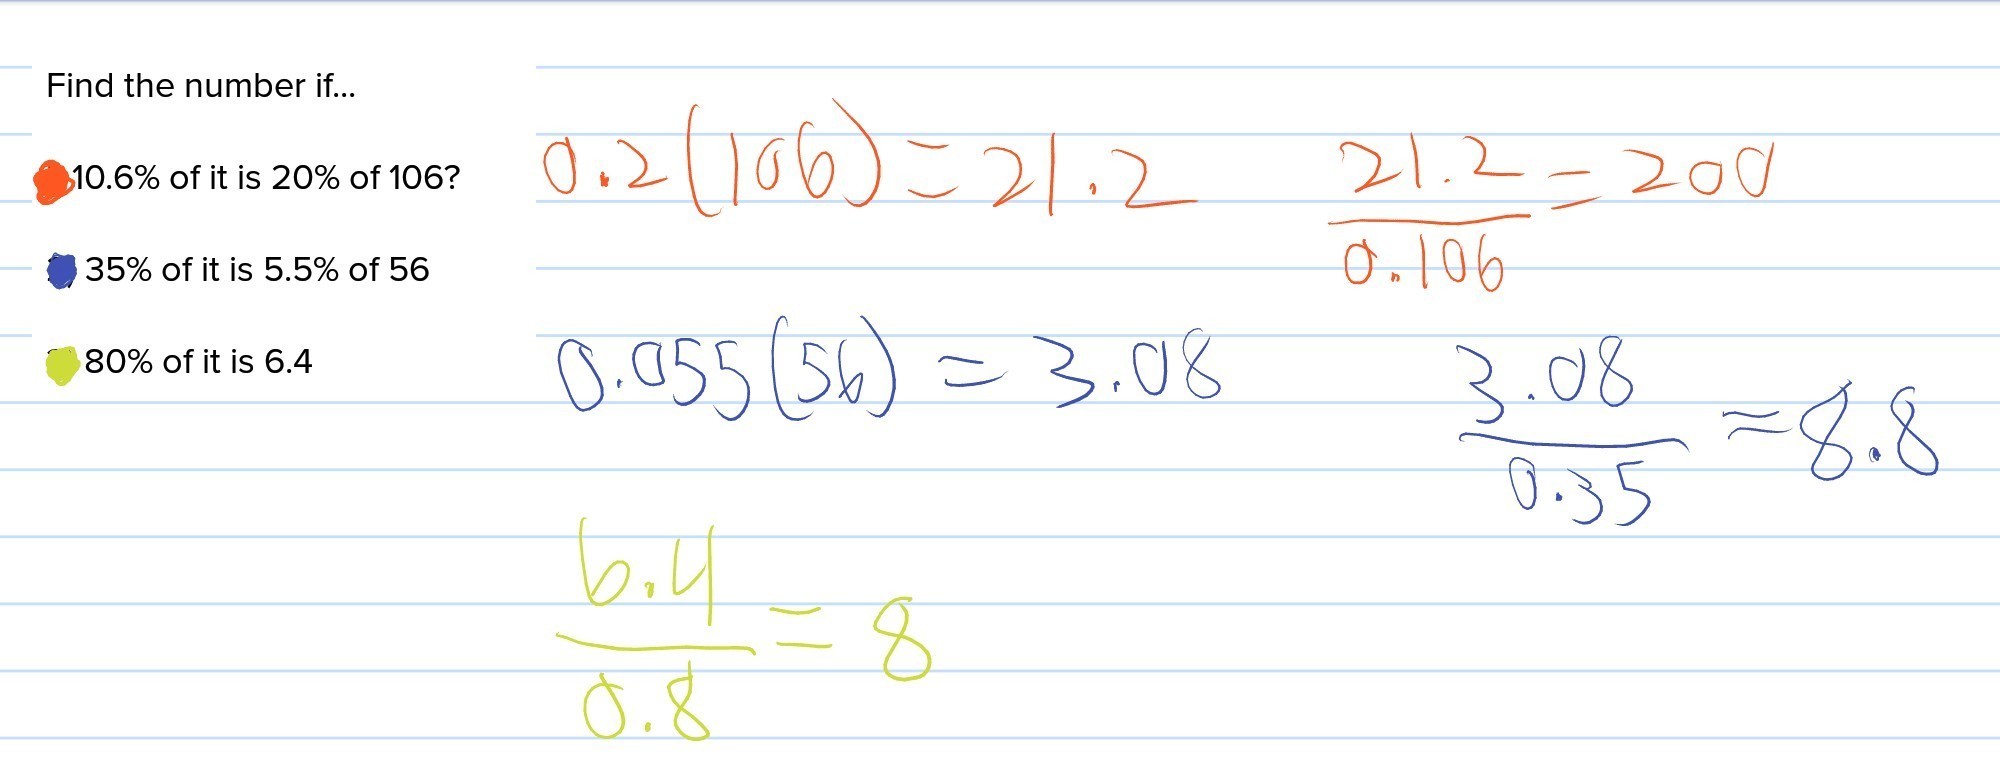 Find the number if...
10.6% of it is 20% of 106?
0.2(106) = 21.2
21.2/0.106 = 200
35% of it is 5.5% of 56
0.055(56) = 3.08
3.08/0.35 = 8.8
80% of it is 6.4
6.4/0.8 = 8